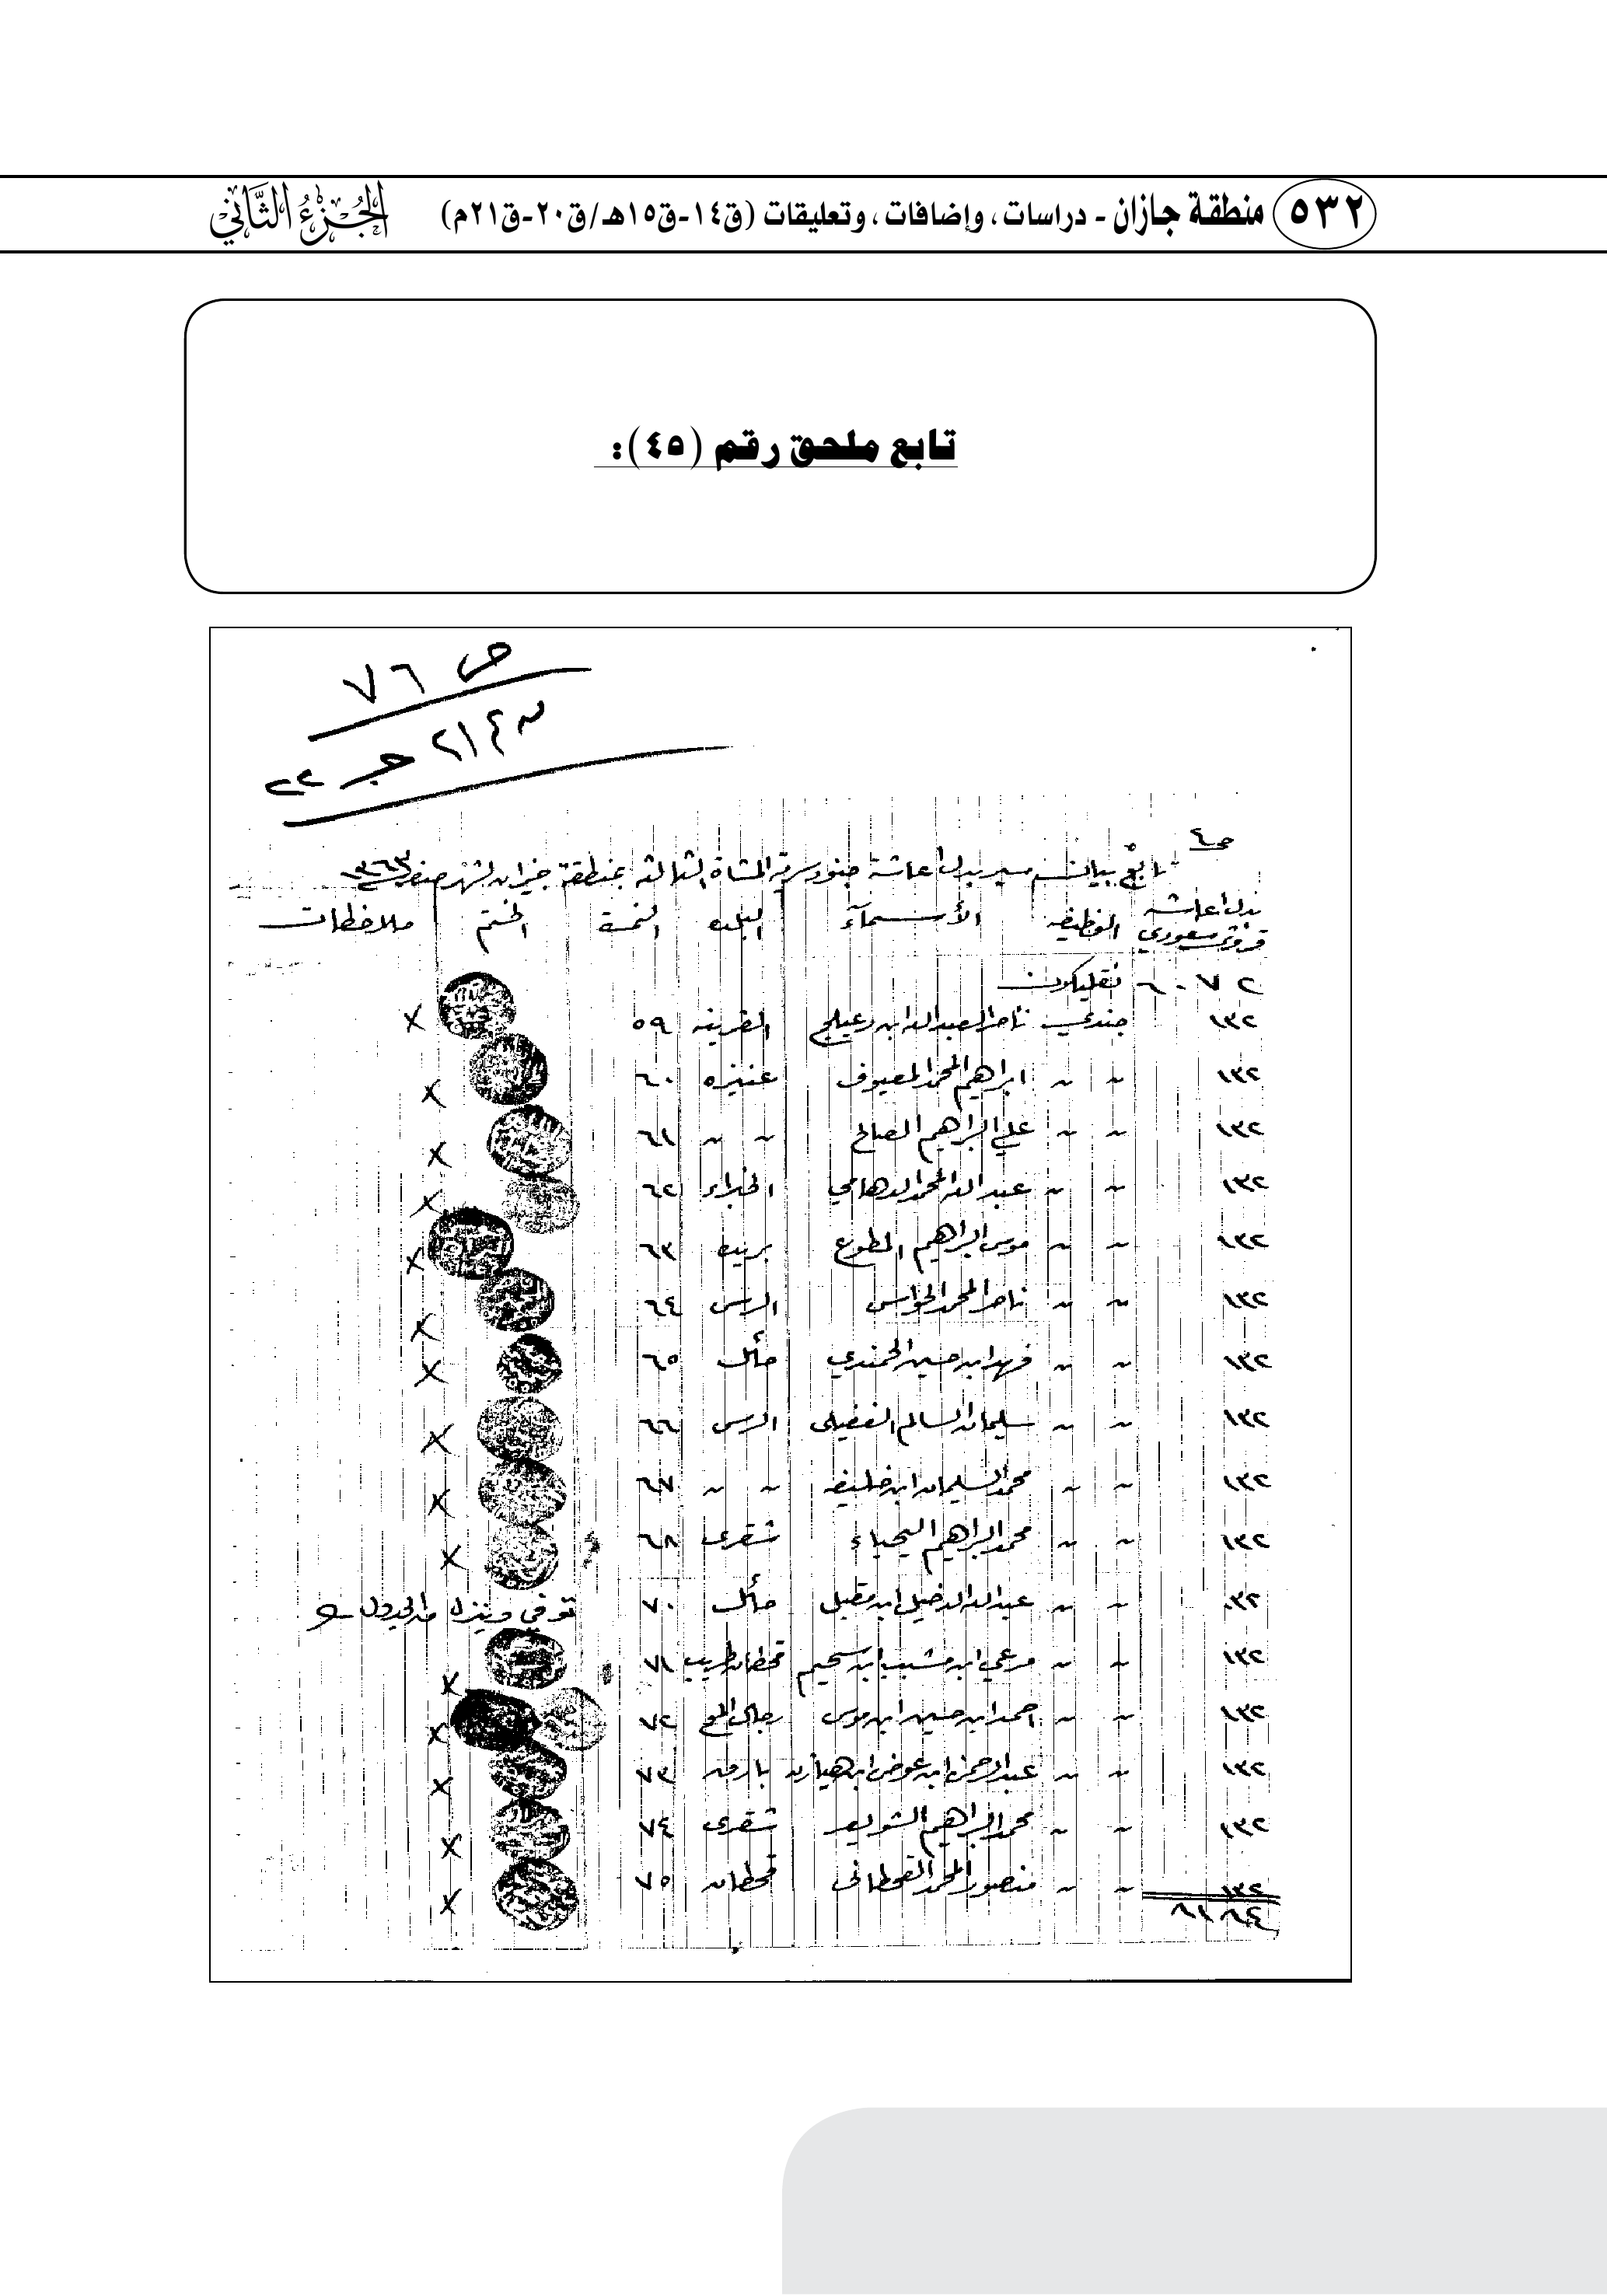 ٥٣٢ منطقة جازان - دراسات، وإضافات، وتعليقات (ق١٤-ق١٥هـ/ق٢٠-ق٢١م) الجُزءُ الثَّاني
تابع ملحق رقم (٤٥):
ص ٧٦
٢١٤ جـ ٢٢
ص٤
تابع بيان مسير بدل اعاشة جنود سرية المشاة الثالثة بمنطقة جيزان لشهر صفر ١٣٦٣
بدل اعاشة قروش سعودي الوظيفه الأسمآء البلده النمرة الختم ملاحظات
٦٠٧٢ نقليكون
١٣٢ جندي ناصر العبدالله ابن دعيلج القرينه ٥٩
١٣٢ " " ابراهيم المحمد المعيوف عنيزه ٦٠
١٣٢ " " علي البراهيم الصالح " " ٦١
١٣٢ " " عبدالله المحمد الدهامي الخبراء ٦٢
١٣٢ " " موسى البراهيم المطوع بريده ٦٣
١٣٢ " " ناصر المحمد الخواس الرس ٦٤
١٣٢ " " فهد ابن حسين الحمندي حائل ٦٥
١٣٢ " " سليمان السالم الفضيلي الرس ٦٦
١٣٢ " " محمد السليمان ابن خليفه " " ٦٧
١٣٢ " " محمد البراهيم اليحياء شقرى ٦٨
١٣٢ " " عبدالله الدخيل ابن مقبل حائل ٧٠ توفي وينزل من الجدول
١٣٢ " " مرعي ابن مشبب ابن سحيم قحطان طريب ٧١
١٣٢ " " احمد ابن حسين ابن موسى رجال المع ٧٢
١٣٢ " " عبدالرحمن ابن عوض ابن هيازن بارق ٧٣
١٣٢ " " محمد البراهيم الشويعر شقرى ٧٤
١٣٢ " " منصور المحمد القحطاني قحطان ٧٥